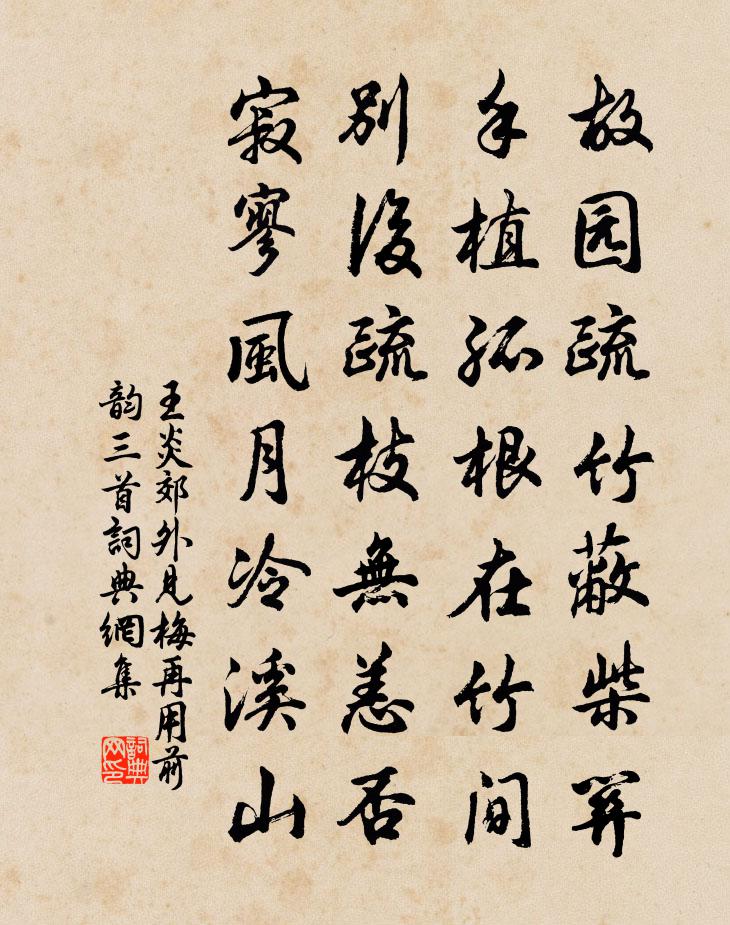 故园疏竹蔽柴關
手植孤根在竹间
別後疏枝無恙否
寂寥風月冷溪山
王炎郊外見梅再用前
韵三首詞典網集
詞典网印